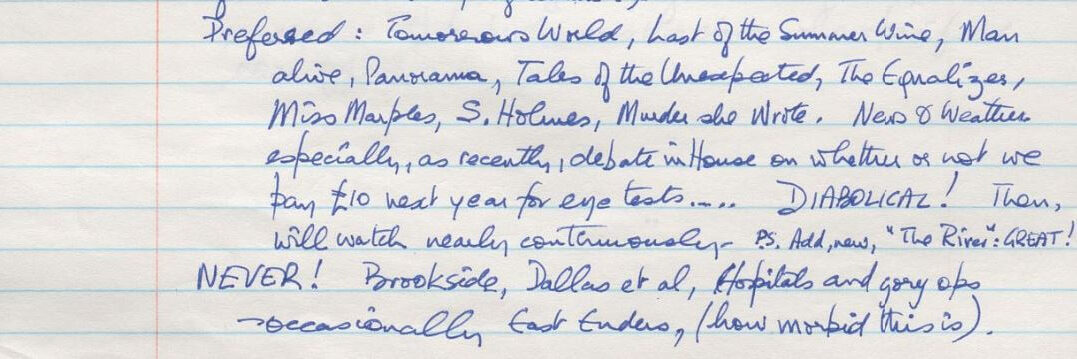 Preferred: Tomorrows World, Last of the Summer Wine, Man
alive, Panorama, Tales of the Unexpected, The Equalizer,
Miss Marples, S. Holmes, Murder she Wrote. News & Weather
especially, as recently, debate in House on whether or not we
pay £10 next year for eye tests..... DIABOLICAL! Then,
will watch nearly continuously - P.S. Add, new, "The River": GREAT!
NEVER! Brookside, Dallas et al, Hospitals and gory ops
- occasionally East Enders, (how morbid this is).